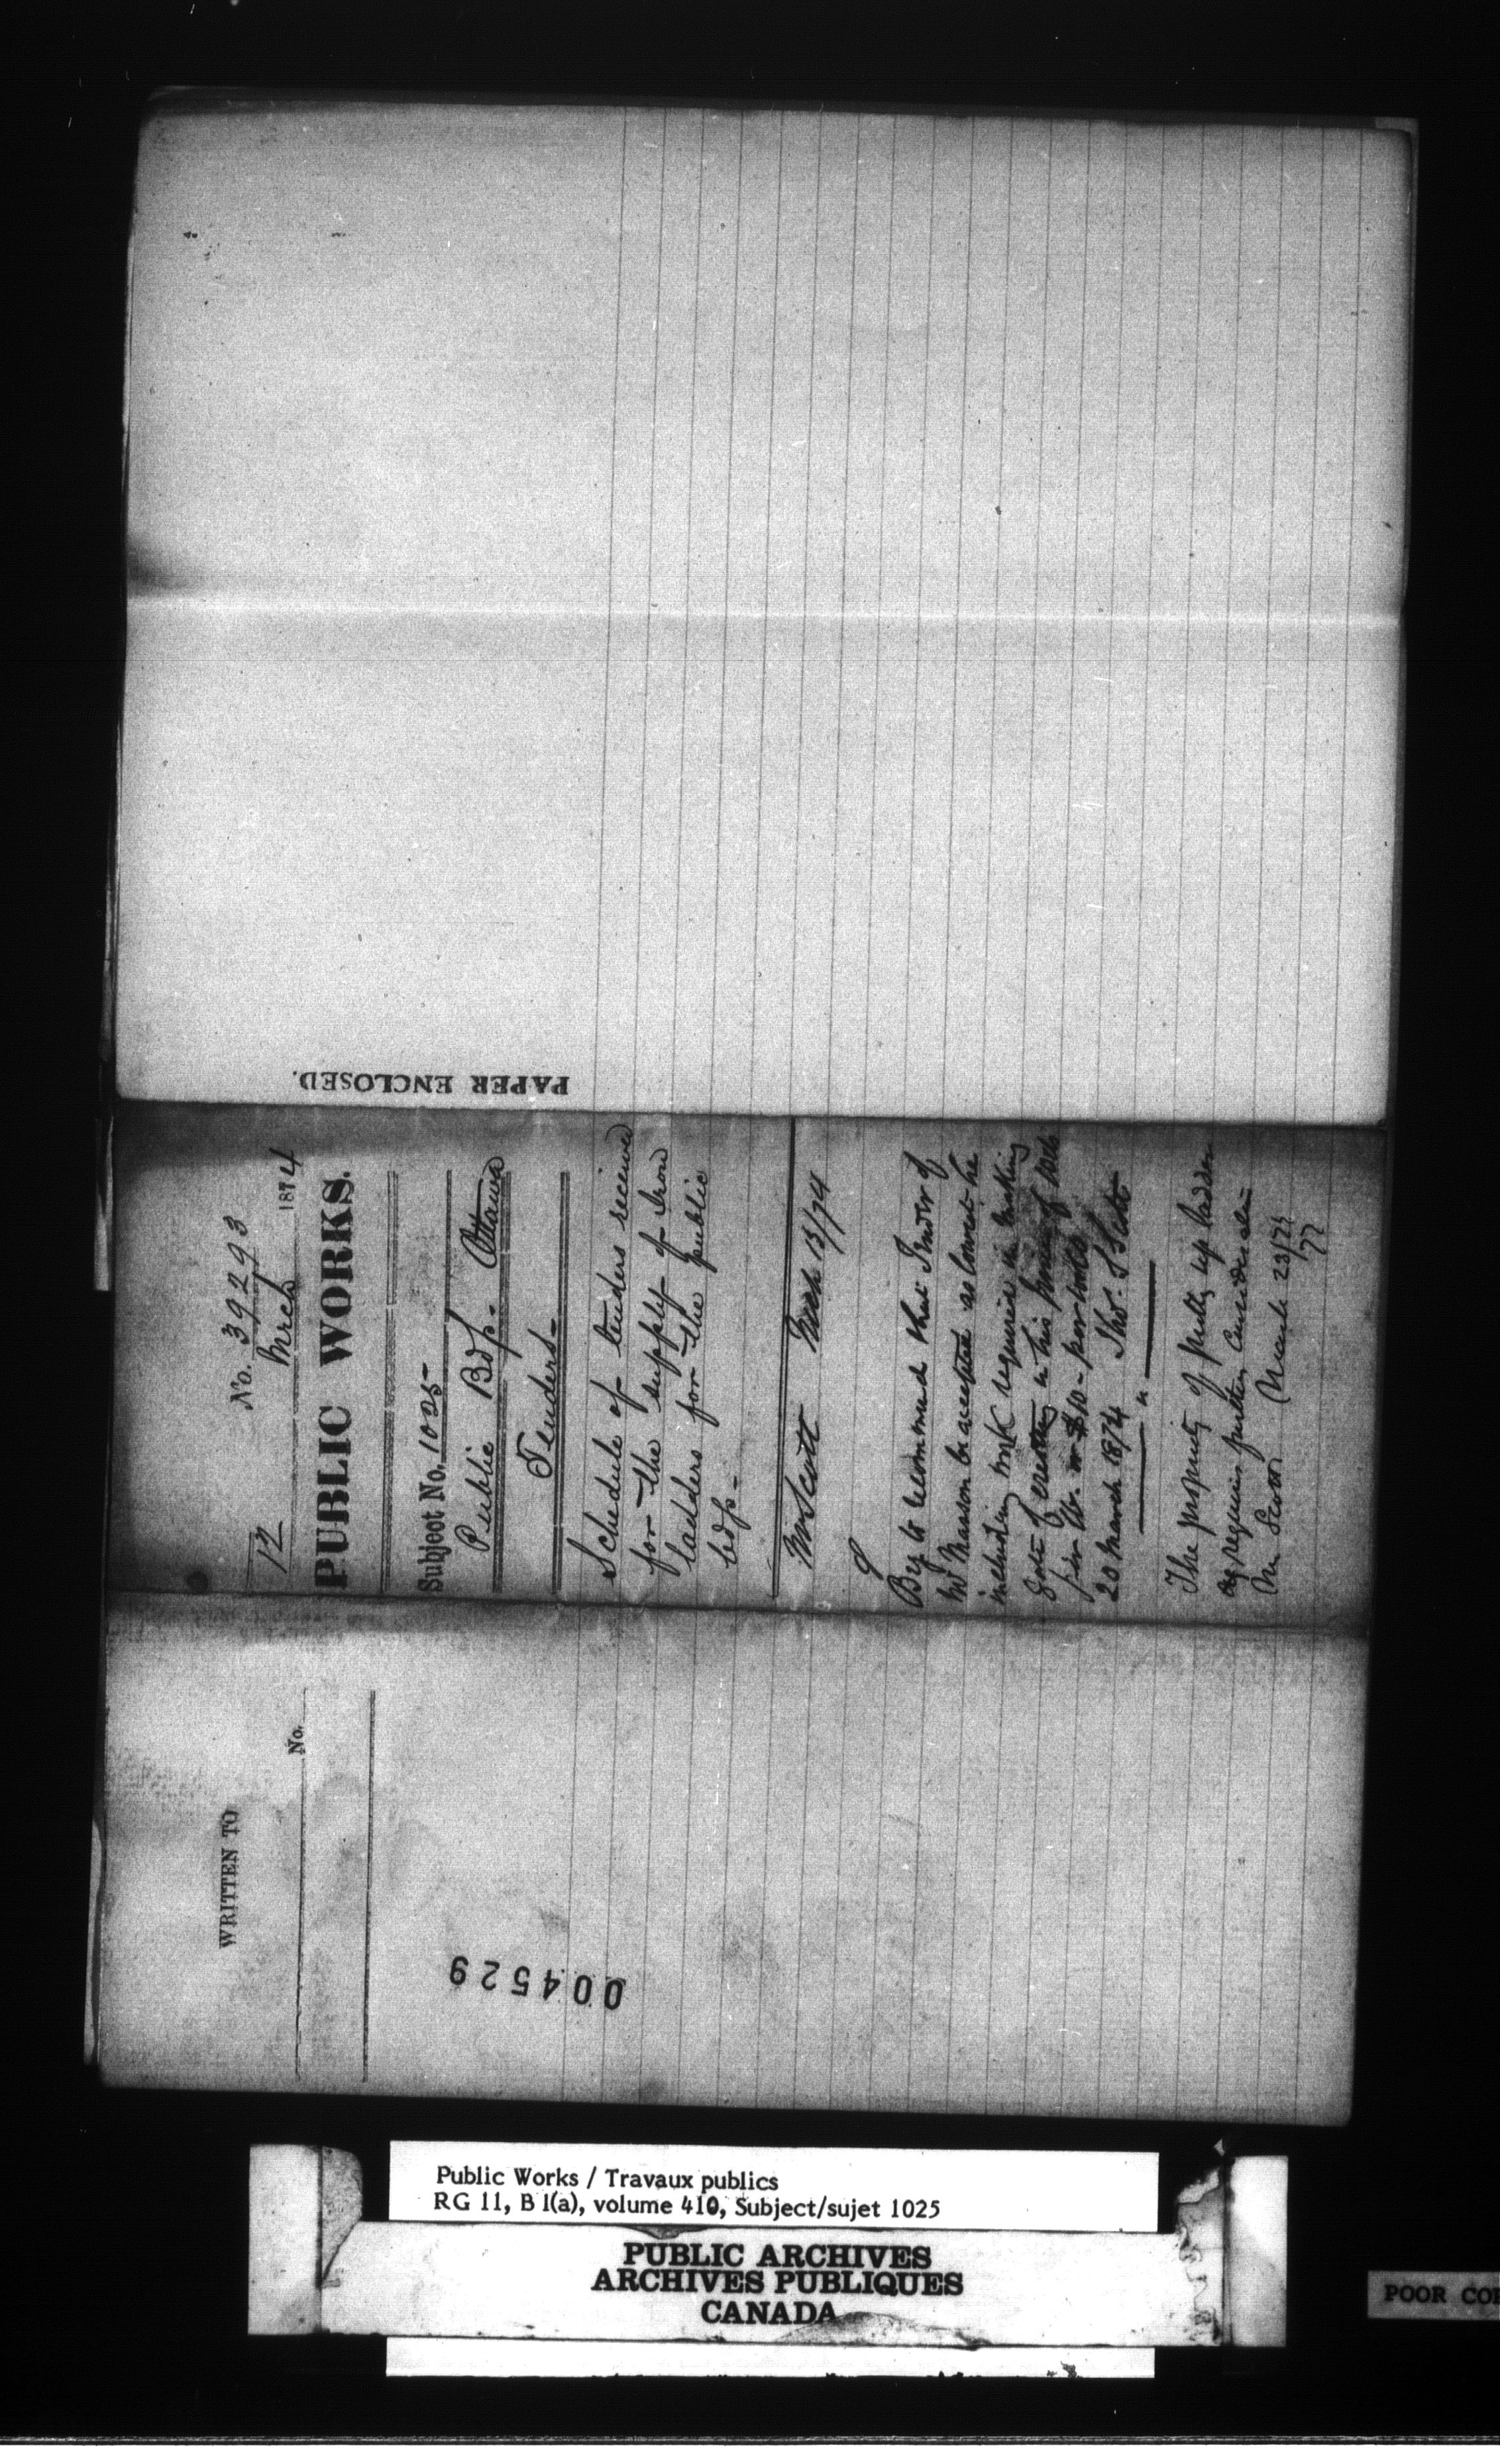 PAPER ENCLOSED.
No. 39293
12 Mrch 1874
PUBLIC WORKS.
Subject No. 1025
Public Bdgs. Ottawa
Tenders-
Schedule of tenders received
for the supply of Iron
ladders for the public
bdgs-
Mr Scott Mch 13/74
Beg to recommend that Tender of
Mr Mason be accepted as lowest he
including work required in making
good & erecting in his
per lb. or $10-
20 March 1874 Thos. S Scott
"
The propriety of putting up ladders
requires further consideration
Mr Scott March 23/74
WRITTEN TO
No.
004529
Public Works / Travaux publics
RG 11, B1(a), volume 410, Subject/sujet 1025
PUBLIC ARCHIVES
ARCHIVES PUBLIQUES
CANADA
POOR